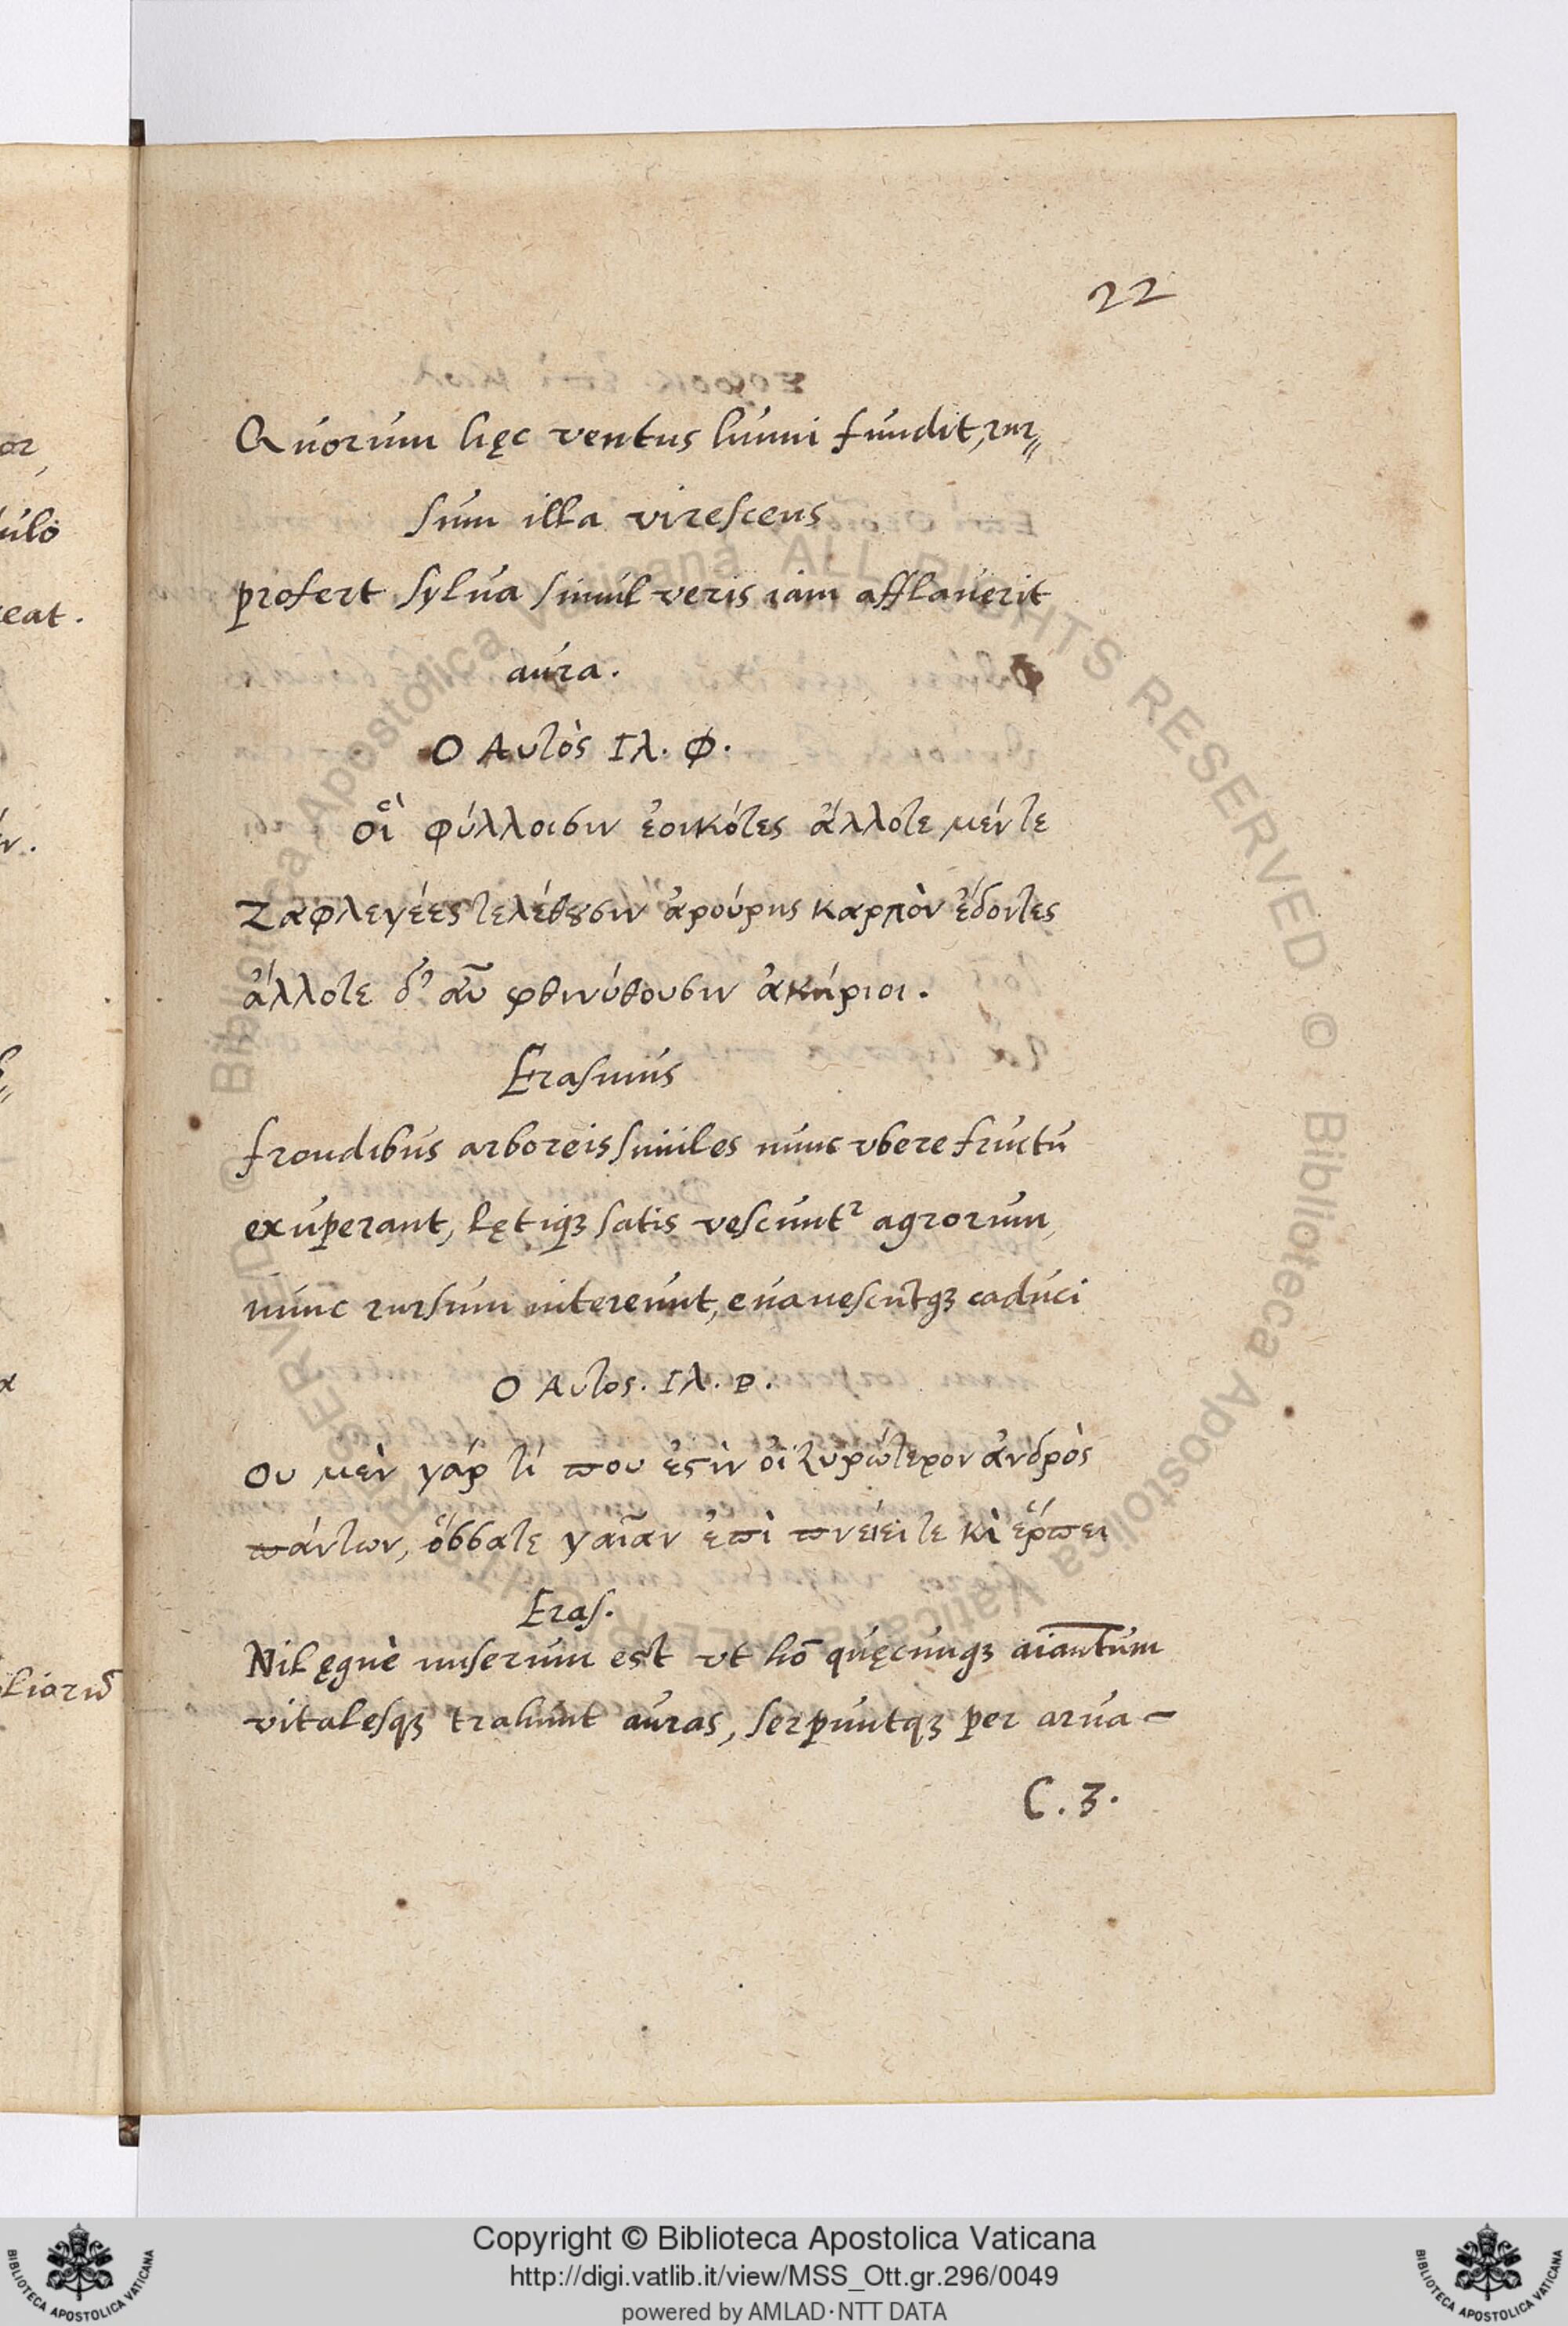 22
Quorum hęc ventus humi fundit, rur⸗
sum illa virescens
profert sylua simul veris iam afflauerit
aura.
Ο Αυτὸς Ιλ. Φ.
οἳ φύλλοισιν ἐοικότες ἄλλοτε μέν τε
Ζαφλεγέες τελέθȣσιν ἀρούρης καρπὸν ἔδοντες
ἄλλοτε δ’ αὖ φθινύθουσιν ἀκήριοι.
Erasmus
frondibus arboreis similes nunc vbere fructu
exuperant, lętiqꝫ satis vescuntʳ agrorum,
nunc rursum intereunt, euanescūtqꝫ caduci
Ο Αυτος. Ιλ. Ρ.
Ου μὲν γάρ τί που ἐςὶν οἳ ζυρώτερον ἀνδρὸς
πάντων, ὅσσατε γαῖαν ἐπὶ πνείει τε κὶ ἕρπει
Eras.
Nil ęquè miserum est vt hō quęcunqꝫ aiantum
vitalesqꝫ trahunt auras, serpuntqꝫ per arua –
C. 3.
or,
ulo
eat.
liariū
Copyright © Biblioteca Apostolica Vaticana
http://digi.vatlib.it/view/MSS_Ott.gr.296/0049
powered by AMLAD·NTT DATA
BIBLIOTECA APOSTOLICA VATICANA
BIBLIOTECA APOSTOLICA VATICANA